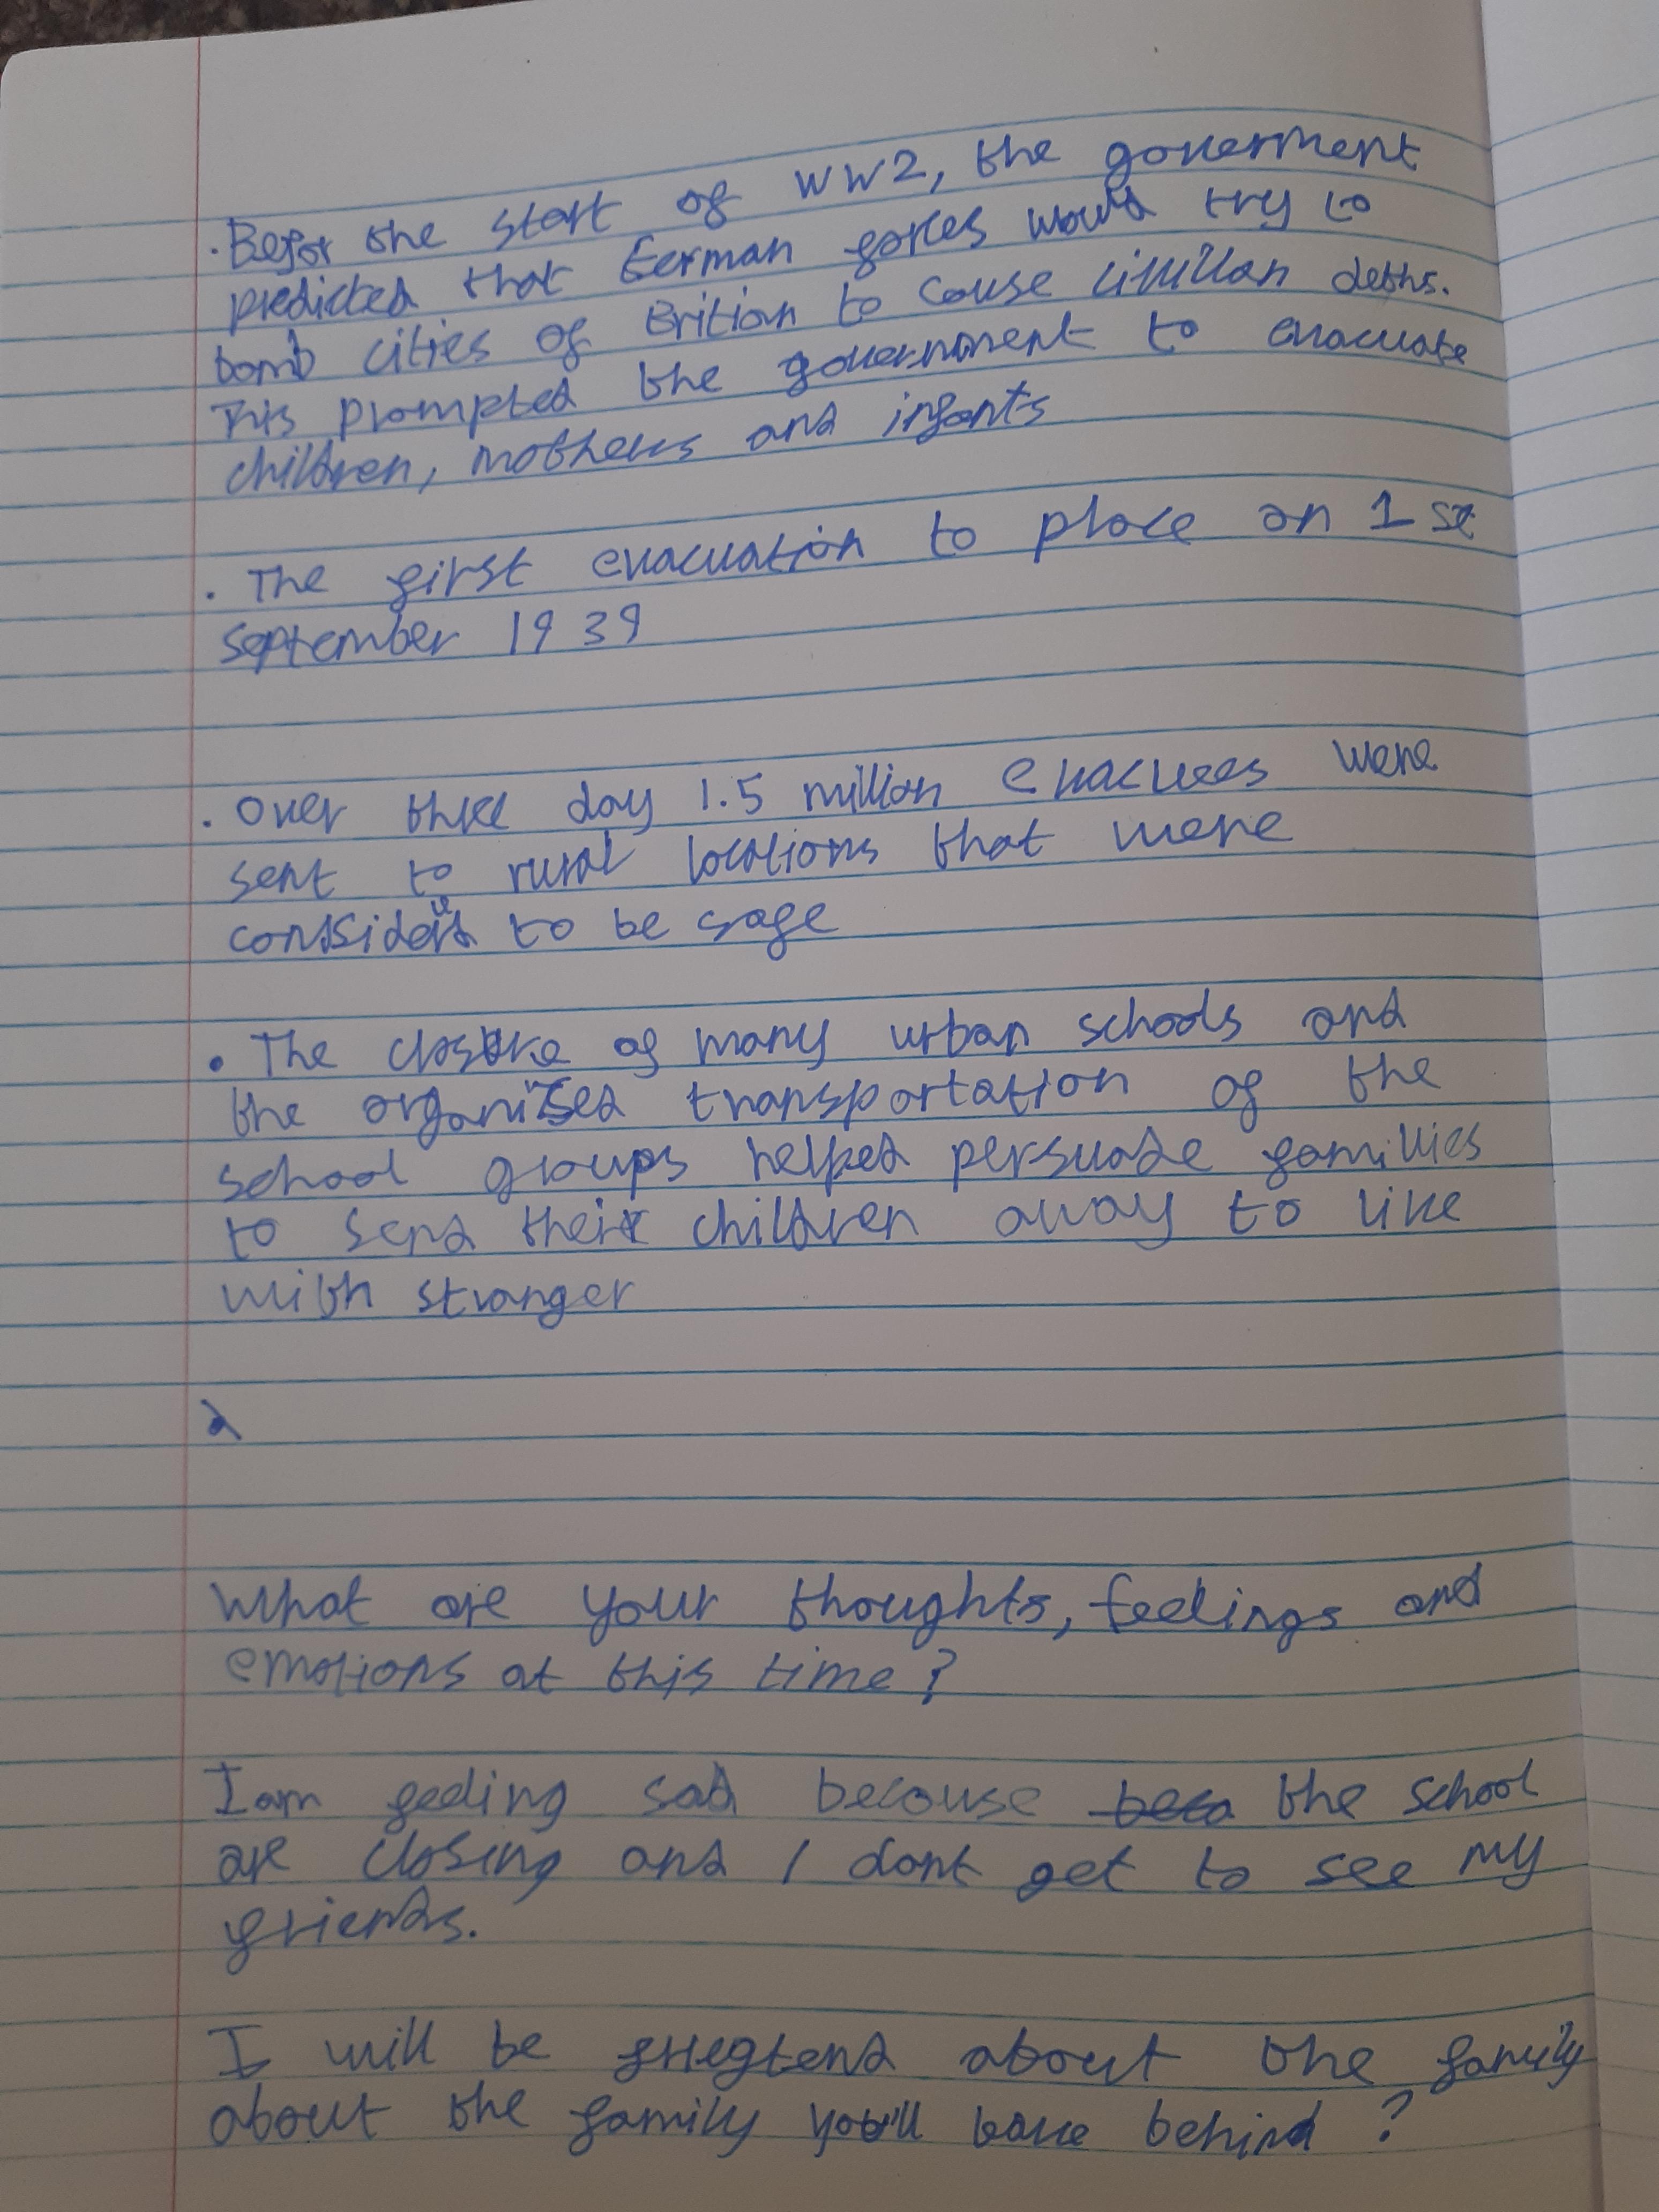 . Befor the start of WW2, the goverment
predicted that German forces would try to
bomb cities of Brition to couse civillan deths.
This prompted the government to evacuate
children, mothers and infants
. The first evacuation to place on 1 st
September 19 39
. Over three day 1.5 million evacuees were
sent to rural locations that were
considerd to be safe
. The closure of many urban schools and
the organised transportation of the
school groups helped persuade famillies
to send their children away to live
with stranger
What are your thoughts, feelings and
emotions at this time?
I am feeling sad because the school
are closing and I dont get to see my
friends.
I will be about the family
about the family you'll leave behind ?